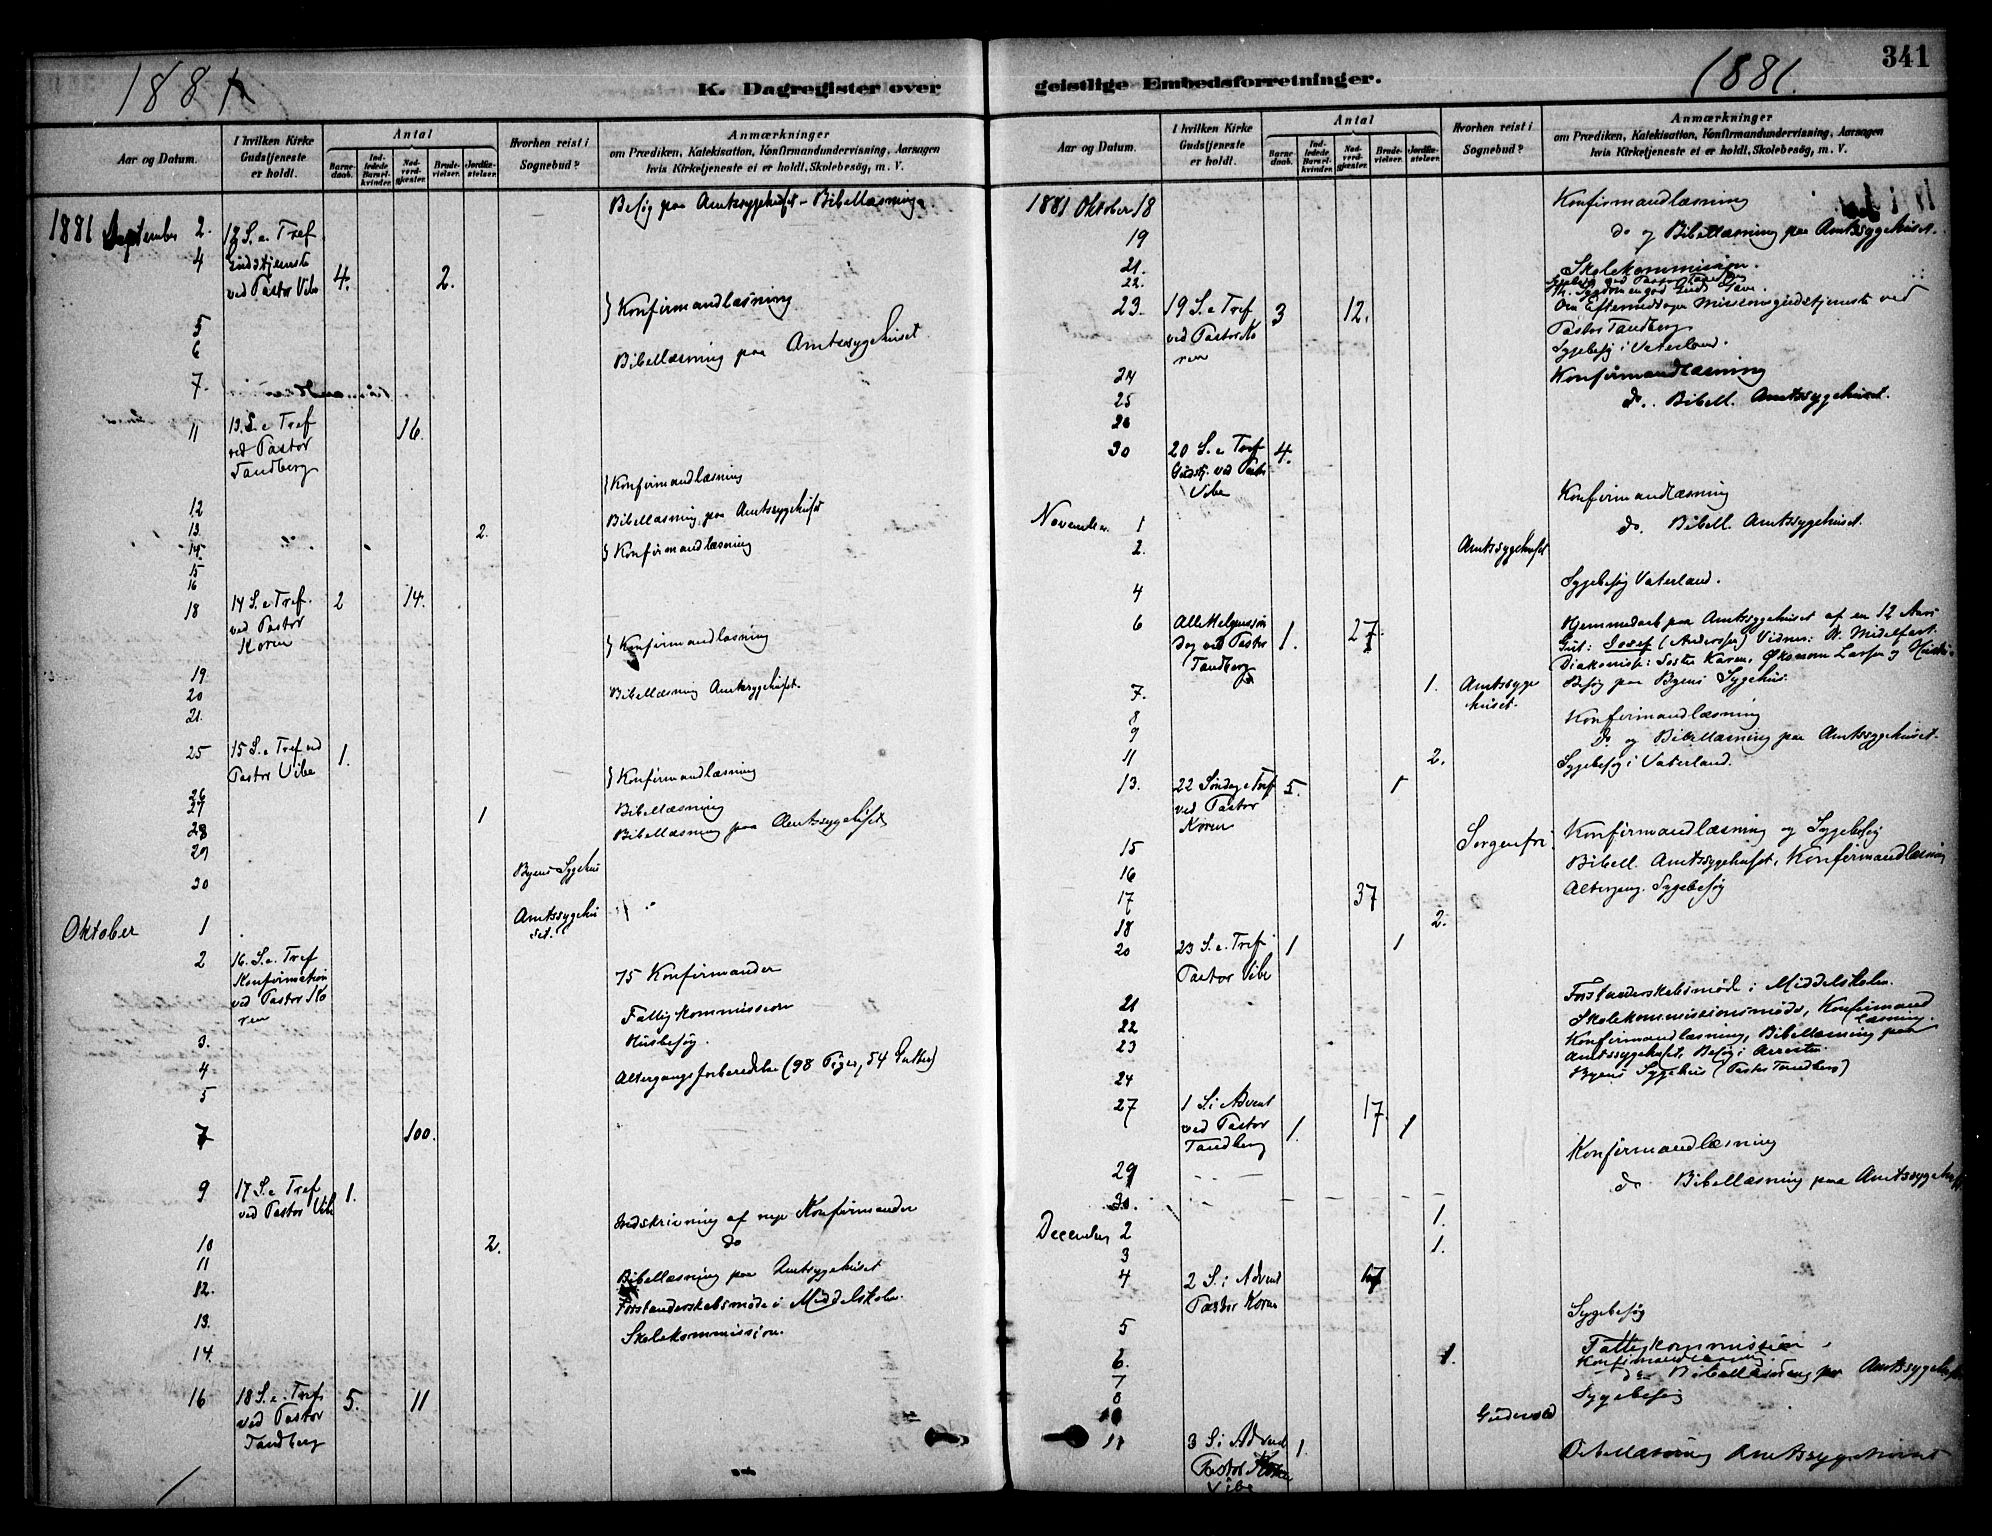 1881
K. Dagregister over
Aar og Datum.
I hvilken Kirke Gudstjeneste er holdt.
Antal
Barnedaab.
Indledede Barselkvinder.
Nadverdgjæster.
Brudevielser.
Jordfæstelser.
Hvorhen reist i Sognebud?
Anmærkninger
om Prædiken, Katekisation, Konfirmandundervisning, Aarsagen
hvis Kirketjeneste ei er holdt, Skolebesøg, m. V.
1881 September 2. Besøg paa Amtssygehuset - Bibellæsning
4 12 S. e. Tref.
Gudstjeneste
ved Pastor Vibe 4. 2.
5 } Konfirmandlæsning
6
7. Bibellæsning paa Amtssygehuset.
11 13. S. e Tref 16.
ved Pastor
Tandberg
12 } Konfirmandlæsning
13. Bibellæsning paa Amtssygehuset
14. 2.
15 } Konfirmandlæsning
16
18 14 S. e Tref. 2 14.
ved Pastor
Koren
19. } Konfirmandlæsning
20
21. Bibellæsning Amtssygehuset.
25 15 S. e Tref ved 1.
Pastor Vibe
26 } Konfirmandlæsning
27
28 1 Bibellæsning
29 Bibellæsning paa Amtssygehuset
30 Byens Sygehus
Oktober 1 Amtssygehu
set.
2 16. S. e. Tref 75 Konfirmander
Konfirmation
ved Pastor Ko
ren
3. Fattigkommission
4 Husbesøg.
5 Altergangsforberedelse (98 Piger, 54 Gutter)
7 100.
9 17 S. e Tref 1.
ved Pastor Vibe
10 2. Indskrivning af nye Konfirmander
11 do
12. Bibellæsning paa Amtssygehuset
13. Forstanderskabsmøde i Middelskolen.
14. Skolekommission.
16 18 S. e. Tref. 5. 11
ved Pastor
Tandberg
341
1881.
geistlige Embedsforretninger.
Aar og Datum.
I hvilken Kirke Gudstjeneste er holdt.
Antal
Barnedaab.
Indledede Barselkvinder.
Nadverdgjæster.
Brudevielser.
Jordfæstelser.
Hvorhen reist i Sognebud?
Anmærkninger
om Prædiken, Katekisation, Konfirmandundervisning, Aarsagen
hvis Kirketjeneste ei er holdt, Skolebesøg, m. V.
1881 Oktober 18 Konfirmandlæsning
19 do og Bibellæsning paa Amtssygehuset.
21. Skolekommission.
22.
23. 19 S. e Tref 3 12. Om Eftermiddagen Missionsgudstjeneste ved
ved Pastor Ko Pastor Tandberg
ren Sygebesøg i Vaterland.
24 Konfirmandlæsning
25 do. Bibell. Amtssygehuset.
26
30 20 S. e Tref 4.
Gudstj. ved Pastor
Vibe
November 1 Konfirmandlæsning
2. do. Bibell. Amtssygehuset.
Amtssygehuset
4 Sygebesøg Vaterland.
6 Allehelgens 1. 27. Hjemmedaab paa Amtssygehuset af en 12 Aars
dag ved Pastor Gut: Josef (Anderssen) Vidner: N. Midelfart.
Tandberg Diakonisse: Søster Karen, Økonom Larsen og Hustru
7. 1. Amtssyge
huset. Besøg paa Byens Sygehus.
8 Konfirmandlæsning
9 do og Bibellæsning paa Amtssygehuset.
11 2. Sygebesøg i Vaterland.
13. 22 Søndag e Tref 5. 1
ved Pastor
Koren
15 Sorgenfri. Konfirmandlæsning og Sygebesøg
16 Bibell. Amtssygehuset, Konfirmandlæsning
17 37 Altergang. Sygebesøg
18 2.
20 23 S. e. Tref. 1 1
Pastor Vibe
21 Forstanderskabsmøde i Middelskolen.
22 Skolekommissionsmøde, Konfirmand
læsning.
23 Konfirmandlæsning, Bibellæsning paa
Amtssygehuset, Besøg i Arresten
24 Byens Sygehus (Pastor Tandberg)
27 1 S. i Advent 1. 17. 1
ved Pastor
Tandberg
29 Konfirmandlæsning
30. do Bibellæsning paa Amtssygehuset
December 2 1.
3 1.
4 2 S. i Advent
Pastor Koren
5 Sygebesøg
6. 1. Fattigkommission
7 Konfirmandlæsning.
8 do Bibellæsning paa Amtssygehuset
10 Sygebesøg
11 3 S. i Advent 1.
Pastor
Vibe
Bibellæsning Amtssygehuset